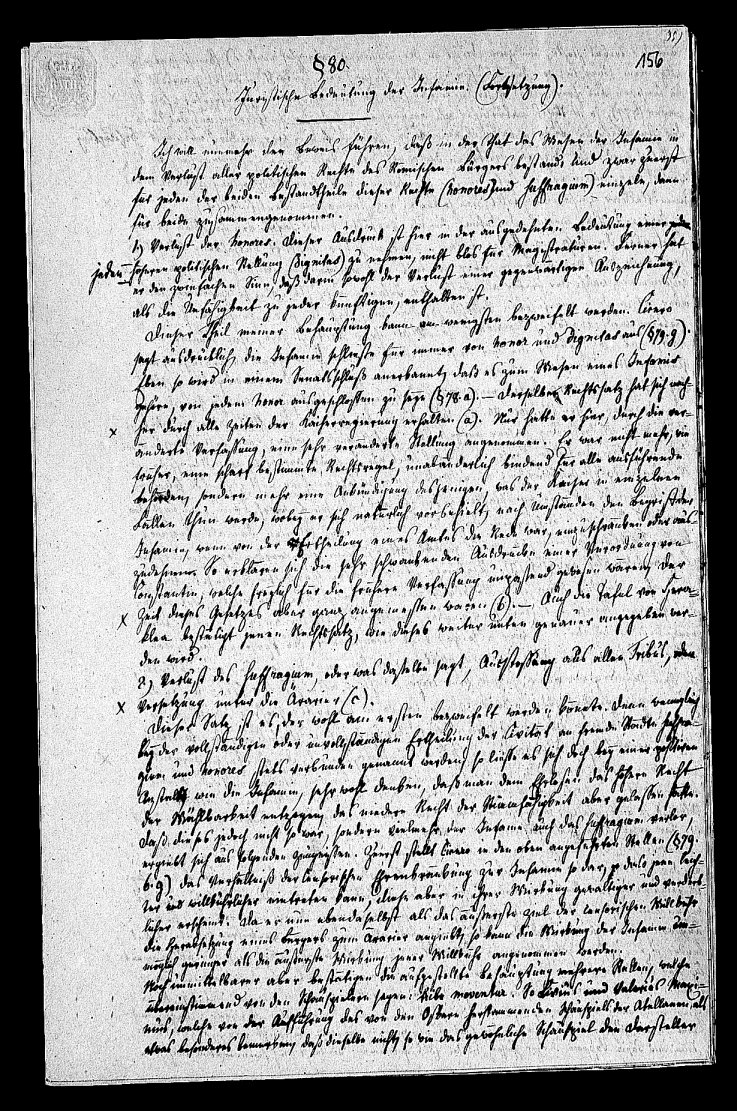 156
§ 80.
Juristische Bedeutung der Infamie. (Fortsetzung).
Ich will nunmehr den Beweis führen, daß in der That das Wesen der Infamie in
dem Verlust aller politischen Rechte des Römischen Bürgers bestand. Und zwar zuerst
für jeden der beiden Bestandtheile dieser Rechte (honores und suffragium) einzeln, dann
für beide zusammengenommen.
1) Verlust der honores. Dieser Ausdruck ist hier in der ausgedehnten Bedeutung einer
jeden höheren politischen Stellung (dignitas) zu nehmen, nicht blos für Magistraturen. Ferner hat
er den zwiefachen Sinn, daß darin sowohl der Verlust einer gegenwärtigen Auszeichnung,
als die Unfähigkeit zu jeder künftigen, enthalten ist.
Dieser Theil meiner Behauptung kann am wenigsten bezweifelt werden. Cicero
sagt ausdrücklich, die Infamie schließe für immer von honor und dignitas aus (§ 79. g).
Eben so wird in einem Senatsschluß anerkannt, daß es zum Wesen eines Infamis
gehöre, von jedem honor ausgeschlossen zu seyn (§ 78. a). — Derselbe Rechtssatz hat sich nach-
her durch alle Zeiten der Kaiserregierung erhalten (a). Nur hatte er hier, durch die ver-
x
änderte Verfassung, eine sehr veränderte Stellung angenommen. Er war nicht mehr, wie
früher, eine scharf bestimmte Rechtsregel, unabänderlich bindend für alle ausführende
Behörden, sondern mehr eine Ankündigung desjenigen, was der Kaiser in einzelnen
Fällen thun werde, wobey er sich natürlich vorbehielt, nach Umständen den Begriff der
Infamie, wenn von der Ertheilung eines Amtes die Rede war, einzuschränken oder aus-
zudehnen. So erklären sich die sehr schwankenden Ausdrücke einer Verordnung von
Constantin, welche freylich für die frühere Verfassung unpassend gewesen wären, der
x
Zeit dieses Gesetzes aber ganz angemessen waren (b). — Auch die Tafel von Hera-
klea bestätigt jenen Rechtssatz, wie dieses weiter unten genauer angegeben wer-
den wird.
2) Verlust des suffragium, oder was dasselbe sagt, Ausstoßung aus allen Tribus,
x
Versetzung unter die Ärarier (c).
Dieser Satz ist es, der wohl am ersten bezweifelt werden könnte. Denn wenngleich
bey der vollständigen oder unvollständigen Ertheilung der Civität an fremde Städte suffra-
gium und honores stets verbunden genannt werden, so ließe es sich doch bey einer positiven
Anstalt, wie die Infamie, sehr wohl denken, daß man dem Ehrlosen das höhere Recht
der Wählbarkeit entzogen, das niedere Recht der Stimmfähigkeit aber gelassen hätte.
Daß dieses jedoch nicht so war, sondern vielmehr der Infame auch das suffragium verlor,
ergiebt sich aus folgenden Zeugnissen. Zuerst stellt Cicero in den oben angeführten Stellen (§ 79.
b. g) das Verhältniß der censorischen Ehrenkränkung zur Infamie so dar, daß jene leich-
ter und willkührlicher eintreten kann, diese aber in ihrer Wirkung gewaltiger und verderb-
licher erscheint. Da er nun ebendaselbst als das äußerste Ziel der censorischen Willkühr
die Herabsetzung eines Bürgers zum Ärarier angiebt, so kann die Wirkung der Infamie un-
möglich geringer als die äußerste Wirkung jener Willkühr angenommen werden.
Noch unmittelbarer aber bestätigen die aufgestellte Behauptung mehrere Stellen, welche
übereinstimmend von den Schauspielern sagen: tribu moventur. So Livius und Valerius Maxi-
mus, welche von der Aufführung des von den Oskern herstammenden Schauspiels der Atellanen, als
etwas besonderes bemerken, daß dieselbe nicht, so wie das gewöhnliche Schauspiel den Darsteller